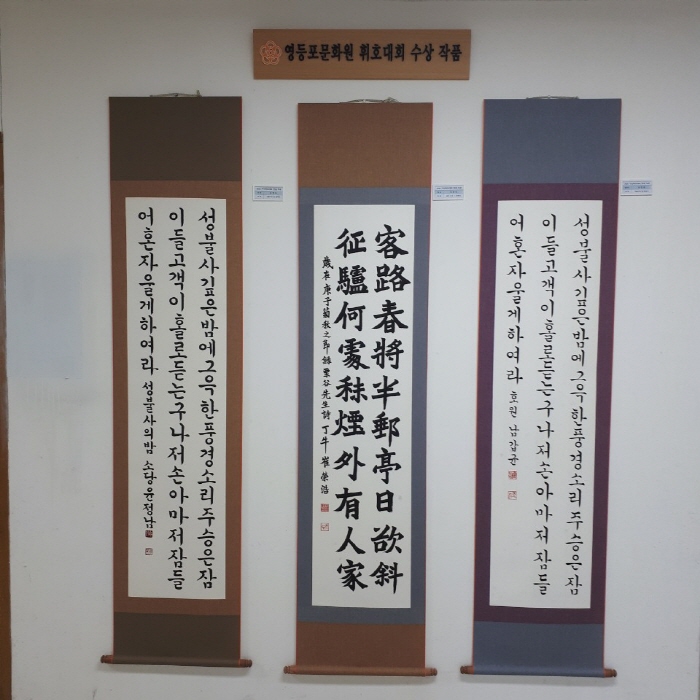 영등포문화원 휘호대회 수상 작품
성불사깊은밤에그윽한풍경소리주승은잠
이들고객이홀로듣는구나저손아마저잠들
어혼자울게하여라 성불사의밤 소당윤정남
客路春將半郵亭日欲斜
征驢何處秣煙外有人家
歲在庚子菊秋之節錄栗谷先生詩 丁牛 崔榮浩
성불사깊은밤에그윽한풍경소리주승은잠
이들고객이홀로듣는구나저손아마저잠들
어혼자울게하여라 호원 남갑균